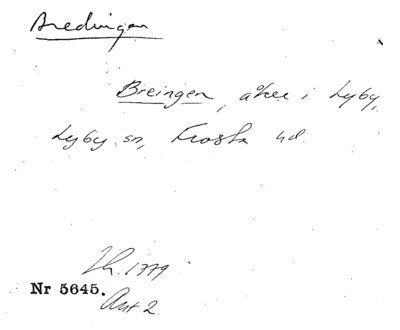 Bredingen
Breingen, åker i Lyby,
Lyby sn, Frosta hd.
Lh. 1779
Nr 5645.
Akt 2.